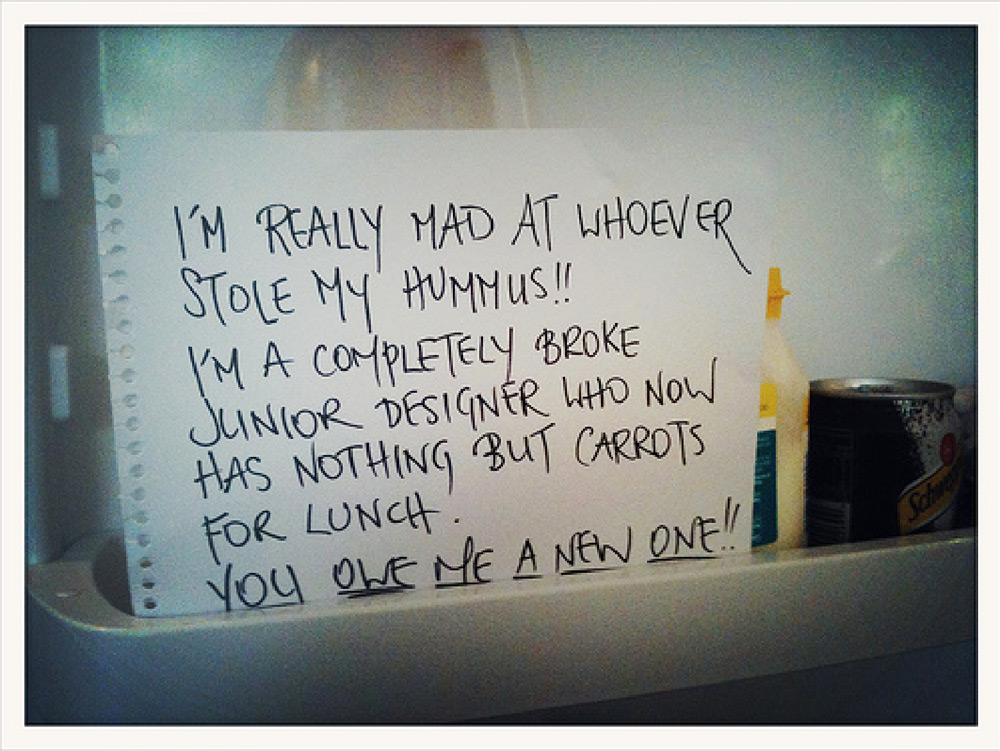 I'M REALLY MAD AT WHOEVER
STOLE MY HUMMUS!!
I'M A COMPLETELY BROKE
JUNIOR DESIGNER WHO NOW
HAS NOTHING BUT CARROTS
FOR LUNCH.
YOU OWE ME A NEW ONE!!
Schw